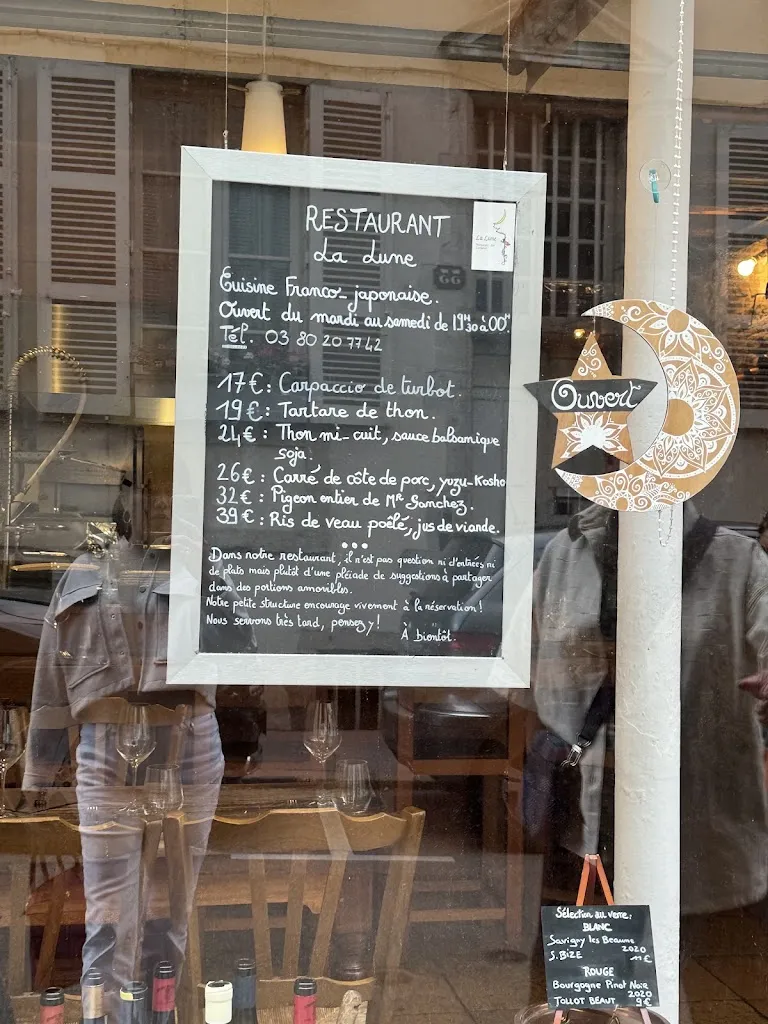 RESTAURANT
La Lune
La Lune
Cuisine Franco-japonaise.
Ouvert du mardi au samedi de 19H30 à 00H.
Tél. 03 80 20 77 42
17€ : Carpaccio de turbot.
19€ : Tartare de thon.
24€ : Thon mi-cuit, sauce balsamique
soja.
26€ : Carré de côte de porc, yuzu-kosho
32€ : Pigeon entier de Mr Sanchez.
39€ : Ris de veau poêlé, jus de viande.
Dans notre restaurant, il n'est pas question ni d'entrées ni
de plats mais plutôt d'une pléiade de suggestions à partager
dans des portions amovibles.
Notre petite structure encourage vivement à la réservation !
Nous servons très tard, pensez y !
À bientôt.
Ouvert
Sélection au verre :
BLANC
Savigny les Beaune
2020
S. BIZE 11€
ROUGE
Bourgogne Pinot Noir
2020
TOLLOT BEAUT 9€